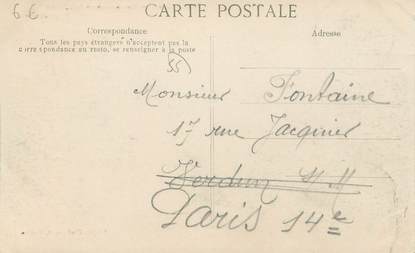 6€
CARTE POSTALE
Correspondance
Tous les pays étrangers n'acceptent pas la
correspondance au recto, se renseigner à la poste
Adresse
55
Monsieur Fontaine
17 rue Jacquier
Verdun
Paris 14e